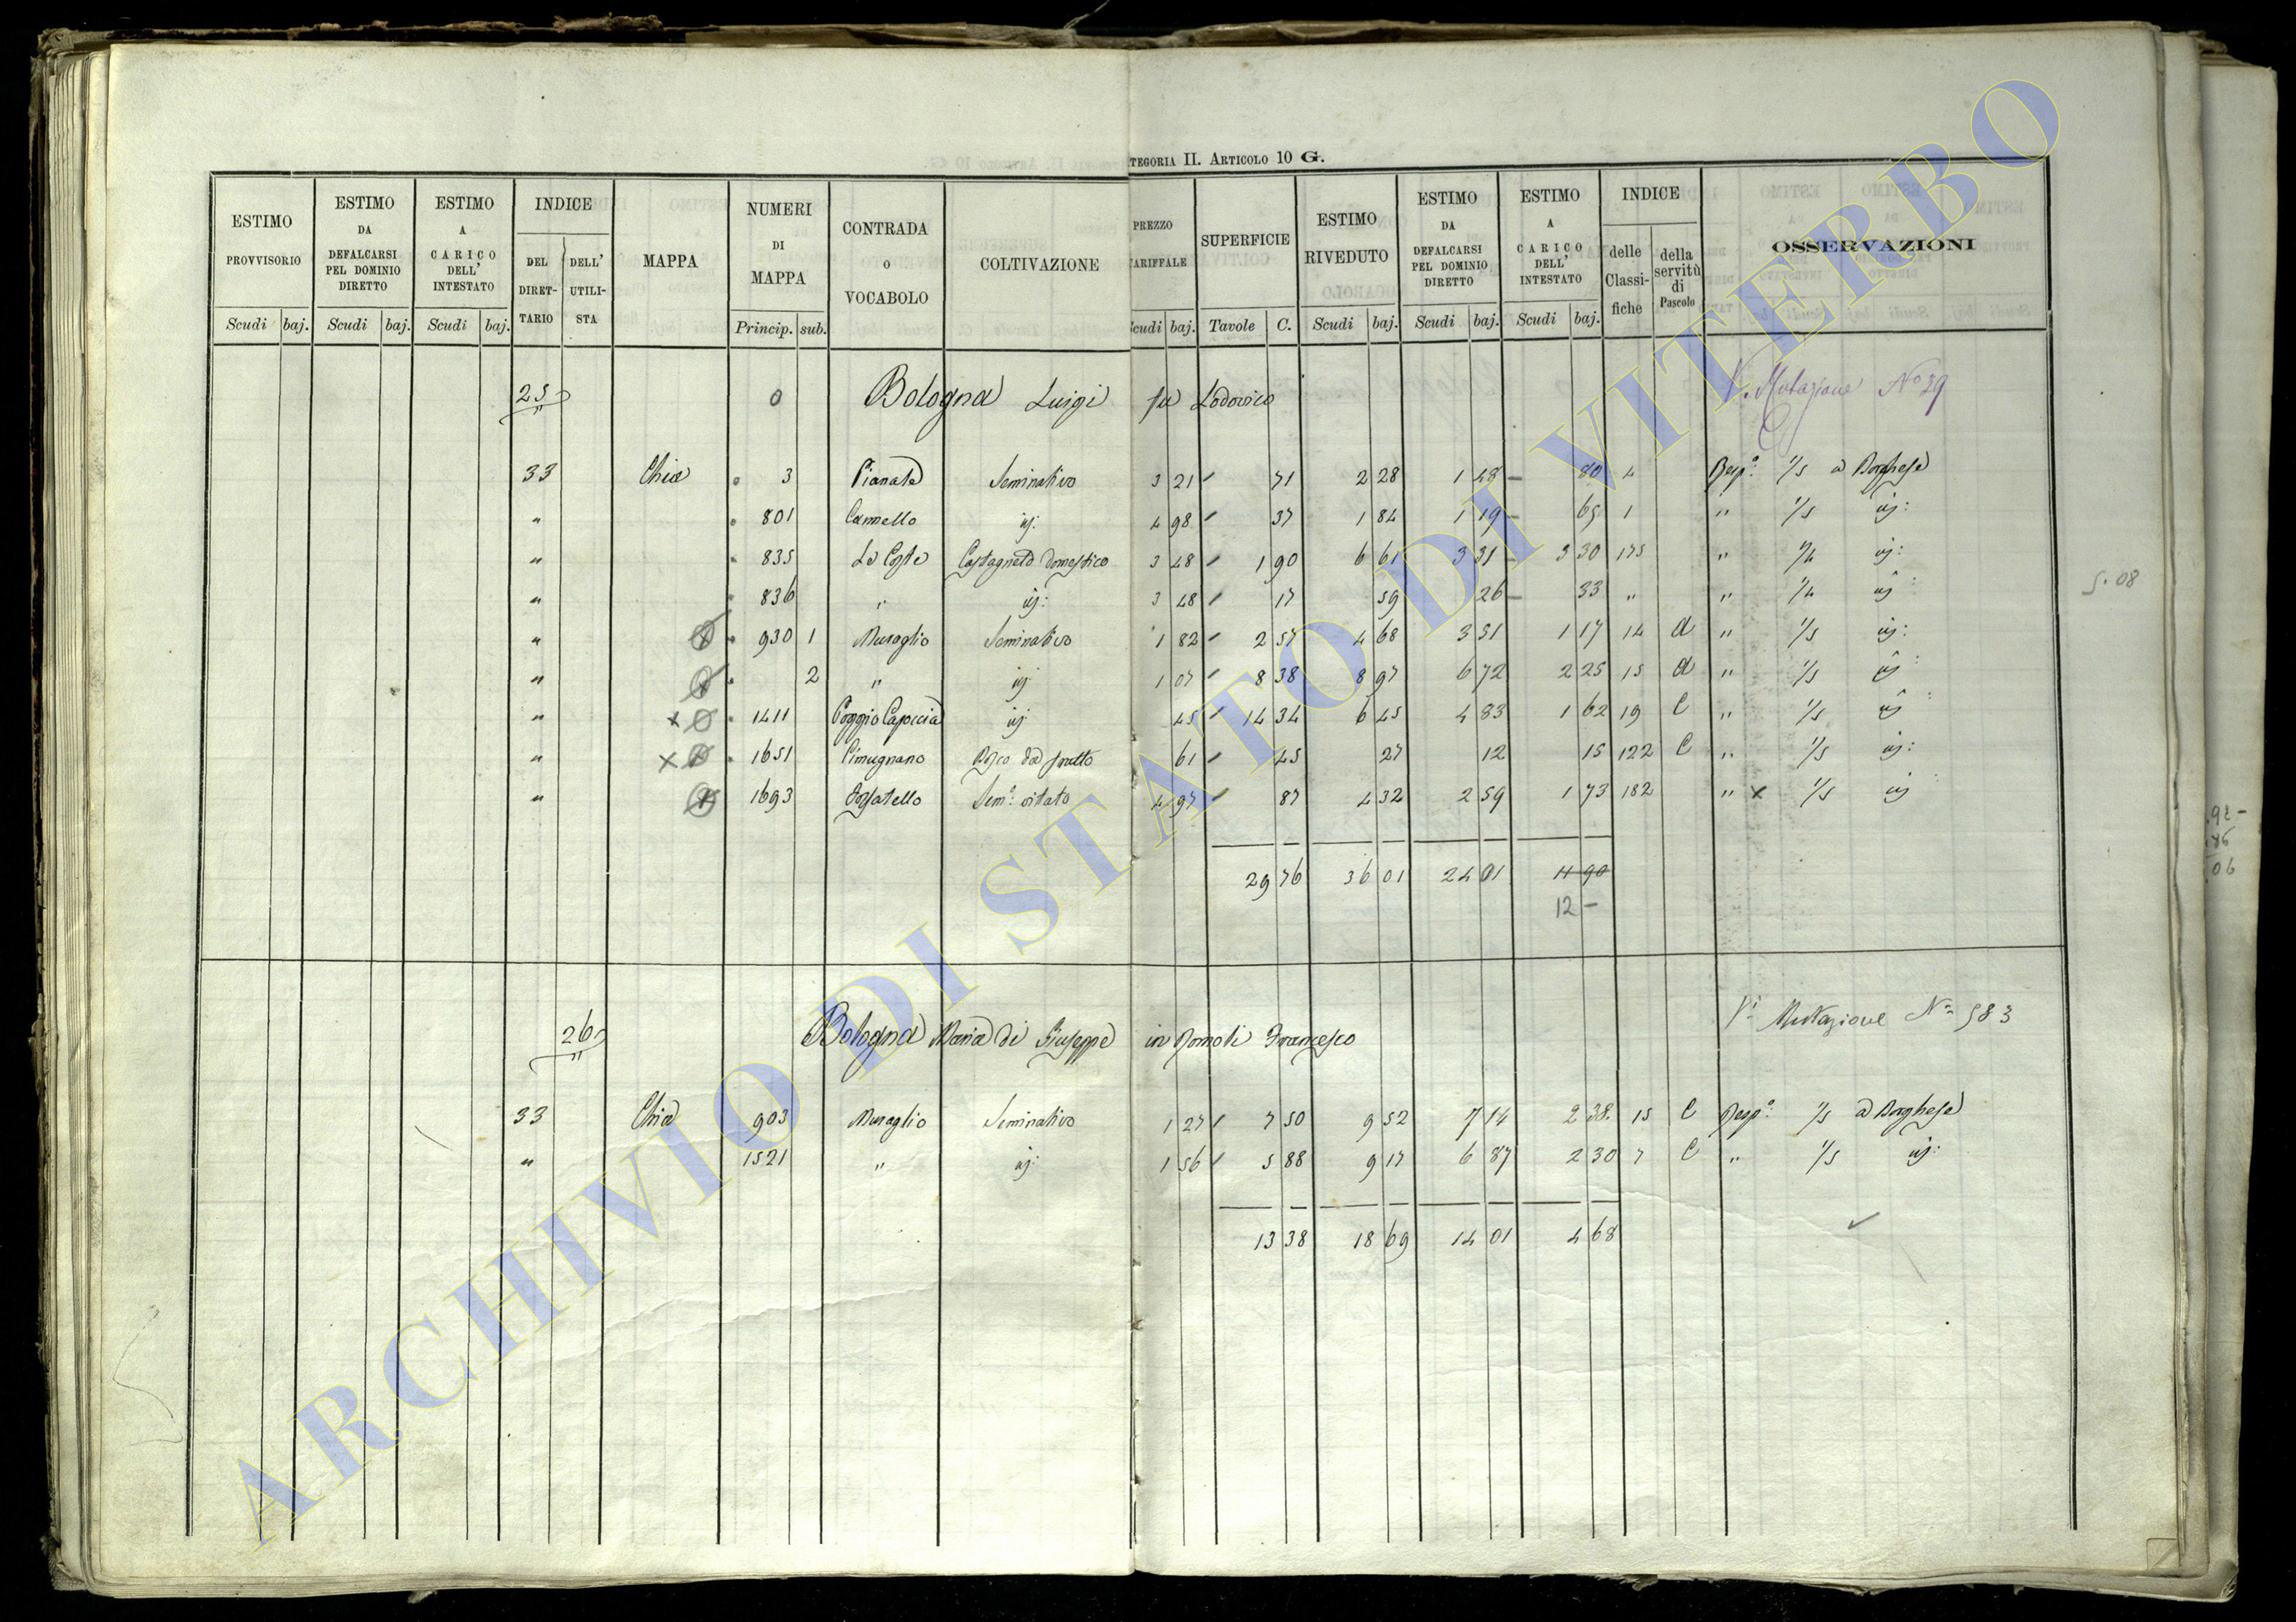 CATEGORIA II. ARTICOLO 10 G.
ESTIMO PROVVISORIO Scudi baj. ESTIMO DA DEFALCARSI PEL DOMINIO DIRETTO Scudi baj. ESTIMO A CARICO DELL' INTESTATO Scudi baj. INDICE DEL DIRETTARIO DELL' UTILISTA MAPPA NUMERI DI MAPPA Princip. sub. CONTRADA O VOCABOLO COLTIVAZIONE PREZZO TARIFFALE Scudi baj. SUPERFICIE Tavole C. ESTIMO RIVEDUTO Scudi baj. ESTIMO DA DEFALCARSI PEL DOMINIO DIRETTO Scudi baj. ESTIMO A CARICO DELL' INTESTATO Scudi baj. INDICE delle Classifiche della servitù di Pascolo OSSERVAZIONI
25 0 Bologna Luigi fu Lodovico V. Mutazione N° 39
33 Chia 3 Pianate Seminativo 3 21 71 2 28 1 48 80 4 Resp.e 1/5 a Borghese
" 801 Cannello id: 4 98 37 1 84 1 19 65 1 " 1/5 id:
" 835 Le Coste Castagneto domestico 3 48 1 90 6 61 3 31 3 30 175 " 1/4 id:
" 836 " id: 3 48 17 59 26 33 " " 1/4 id:
" 930 1 Muraglio Seminativo 1 82 2 57 4 68 3 51 1 17 14 d " 1/5 id:
" 2 " id: 1 07 8 38 8 97 6 72 2 25 15 d " 1/5 id:
" x 1411 Poggio Capoccia id: 45 14 34 6 45 4 83 1 62 19 C " 1/5 id:
" x 1651 Cimugnano Bosco dad frutto 61 45 27 12 15 122 C " 1/5 id:
" 1693 Fossatello Sem.o vitato 4 97 87 4 32 2 59 1 73 182 " x 1/5 id:
29 76 36 01 24 01 11 90
12 -
5.08
26 Bologna Maria di Giuseppe in Romoli Francesco V.i Mutazione N° 583
33 Chia 903 Muraglio Seminativo 1 27 7 50 9 52 7 14 2 38. 15 C Resp.e 1/5 a Borghese
" 1521 " id: 1 56 5 88 9 17 6 87 2 30 7 C " 1/5 id:
13 38 18 69 14 01 4 68
ARCHIVIO DI STATO DI VITERBO